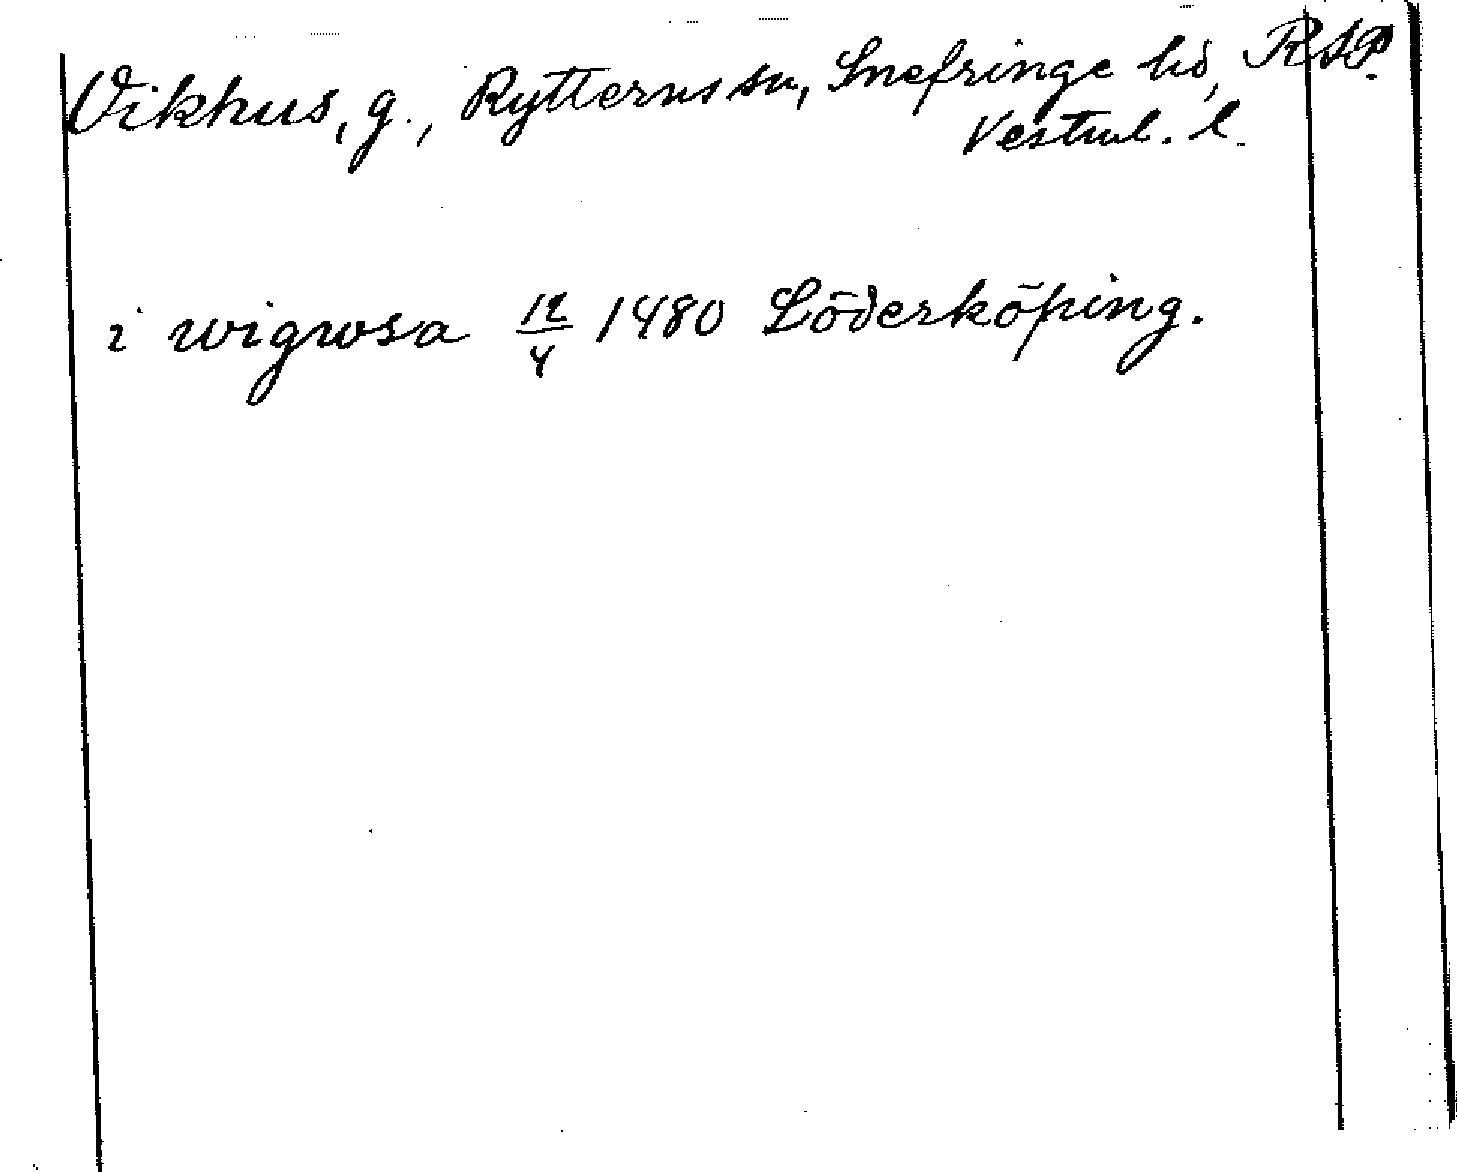 Vikhus, g., Rytterns sn, Snefringe hd, RAP.
Vestml. l.
i wigwsa 12/4 1480 Söderköping.